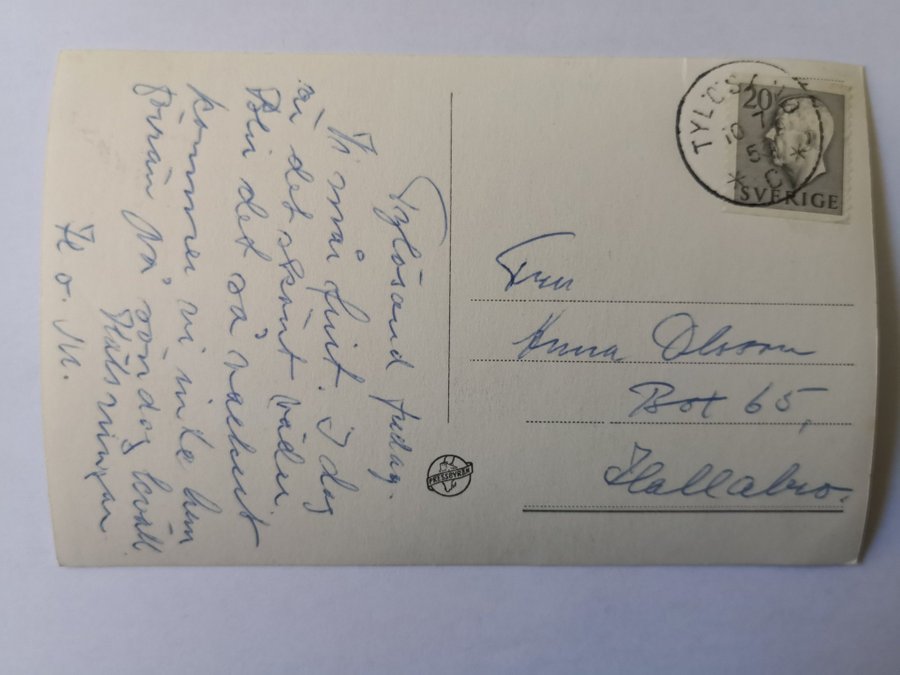 Tylösand fredag.
Vi mår fint. I dag
är det skönt väder.
Blir det så vackert
kommer vi inte hem
förrän på söndag kväll
Hälsningar
H o. M.
TYLÖSAND
10 7
5
* C *
20
SVERIGE
Fru
Anna Olsson
Box 65,
Hallabro.
PRESSBYRÅN